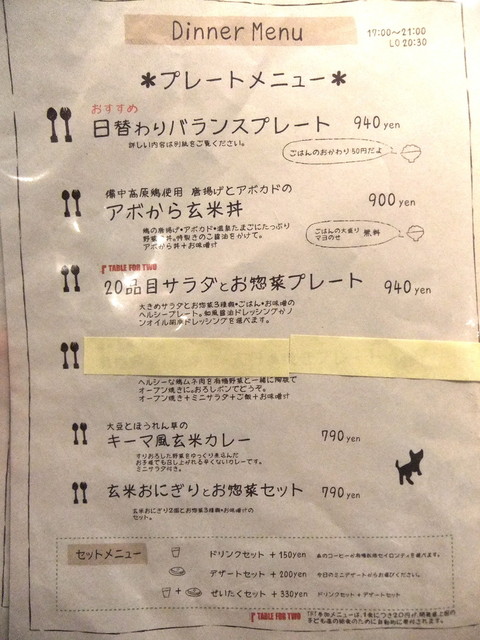 Dinner Menu
17:00～21:00
LO 20:30
＊プレートメニュー＊
おすすめ
日替わりバランスプレート 940yen
詳しい内容は別紙をご覧ください。
ごはんのおかわり50円だよ
備中高原鶏使用 唐揚げとアボカドの
アボから玄米丼 900yen
鶏の唐揚げ・アボカド・温泉たまごにたっぷり
野菜の丼。特製きのこ醤油をかけて。
アボから丼+お味噌汁
ごはんの大盛り 無料
マヨのせ
TABLE FOR TWO
20品目サラダとお惣菜プレート 940yen
大きめサラダとお惣菜3種類・ごはん・お味噌の
ヘルシープレート。和風醤油ドレッシングかノ
ンオイル胡麻ドレッシングを選べます。
ヘルシーな鶏ムネ肉を有機野菜と一緒に陶板で
オーブン焼きに。おろしポンでどうぞ。
オーブン焼き+ミニサラダ+ご飯+お味噌汁
大豆とほうれん草の
キーマ風玄米カレー 790yen
すりおろした野菜をゆっくり煮込んだ
お子様でも召し上がれる辛くないカレーです。
ミニサラダ付き。
玄米おにぎりとお惣菜セット 790yen
玄米おにぎり2個とお惣菜3種類・お味噌汁の
セット。
セットメニュー
ドリンクセット +150yen 食のコーヒーか有機栽培セイロンティを選べます。
デザートセット +200yen 今日のミニデザートからお選びください。
+ ぜいたくセット +330yen ドリンクセット+デザートセット
TABLE FOR TWO TFT参加メニューは、1食につき20円が開発途上国の
子ども達の給食のために自動的に寄付されます。